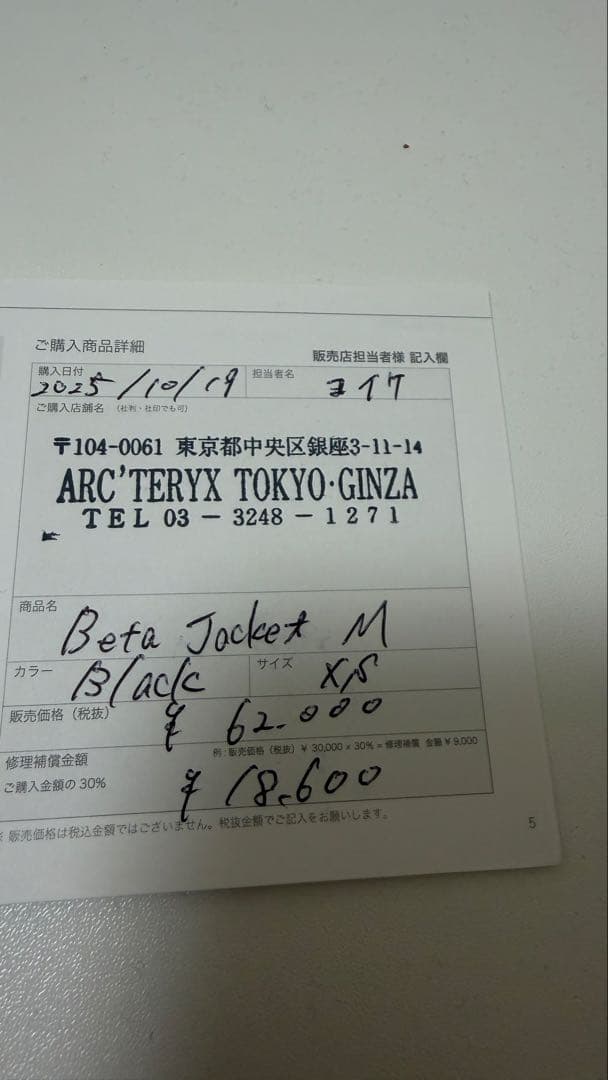 ご購入商品詳細
販売店担当者様 記入欄
購入日付 2025/10/19 担当者名 コイケ
ご購入店舗名 (社判・社印でも可)
〒104-0061 東京都中央区銀座3-11-14
ARC'TERYX TOKYO・GINZA
TEL 03-3248-1271
商品名
Beta Jacket M
カラー Black サイズ XS
販売価格(税抜) ¥62.000
修理補償金額 例:販売価格(税抜)¥30,000×30%=修理補償 金額¥9,000
ご購入金額の30% ¥18.600
※ 販売価格は税込金額ではございません。税抜金額でご記入をお願いします。
5